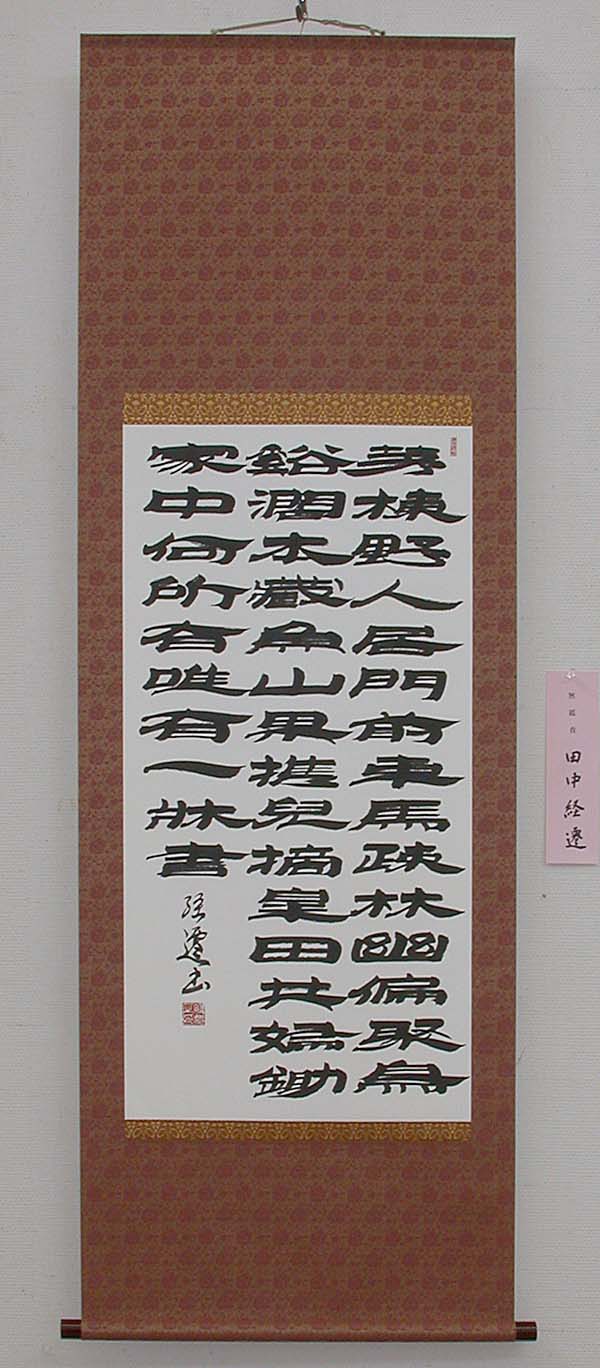 茅棟野人居門前車馬疎林幽偏聚鳥
谿濶本藏魚山果携兒摘皐田共婦鋤
家中何所有唯有一牀書
経遷書
無鑑査
田中経遷